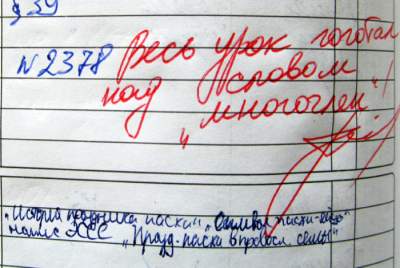 § 39
№ 2378 Весь урок гоготал
над словом
„многочлен"!
„История праздника пасхи", „Символ пасхи-яйцо"
напис ЭССЕ „Празд-пасхи в правосл. семье"